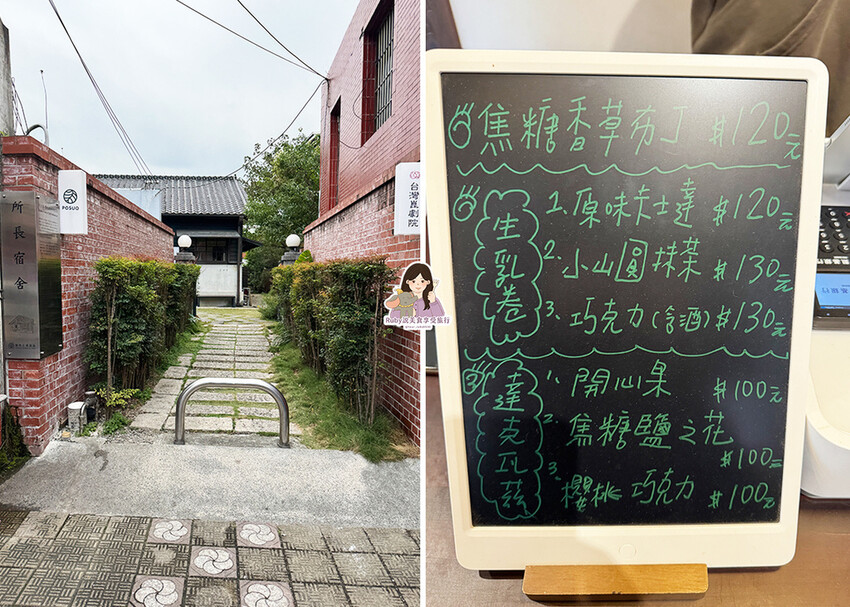 所長宿舍
POSUO
台灣崑劇院
Ruby說美食享受旅行
焦糖香草布丁 $120元
生乳卷
1. 原味卡士達 $120元
2. 小山圓抹茶 $130元
3. 巧克力(含酒) $130元
達克瓦茲
1. 開心果 $100元
2. 焦糖鹽之花 $100元
3. 櫻桃巧克力 $100元